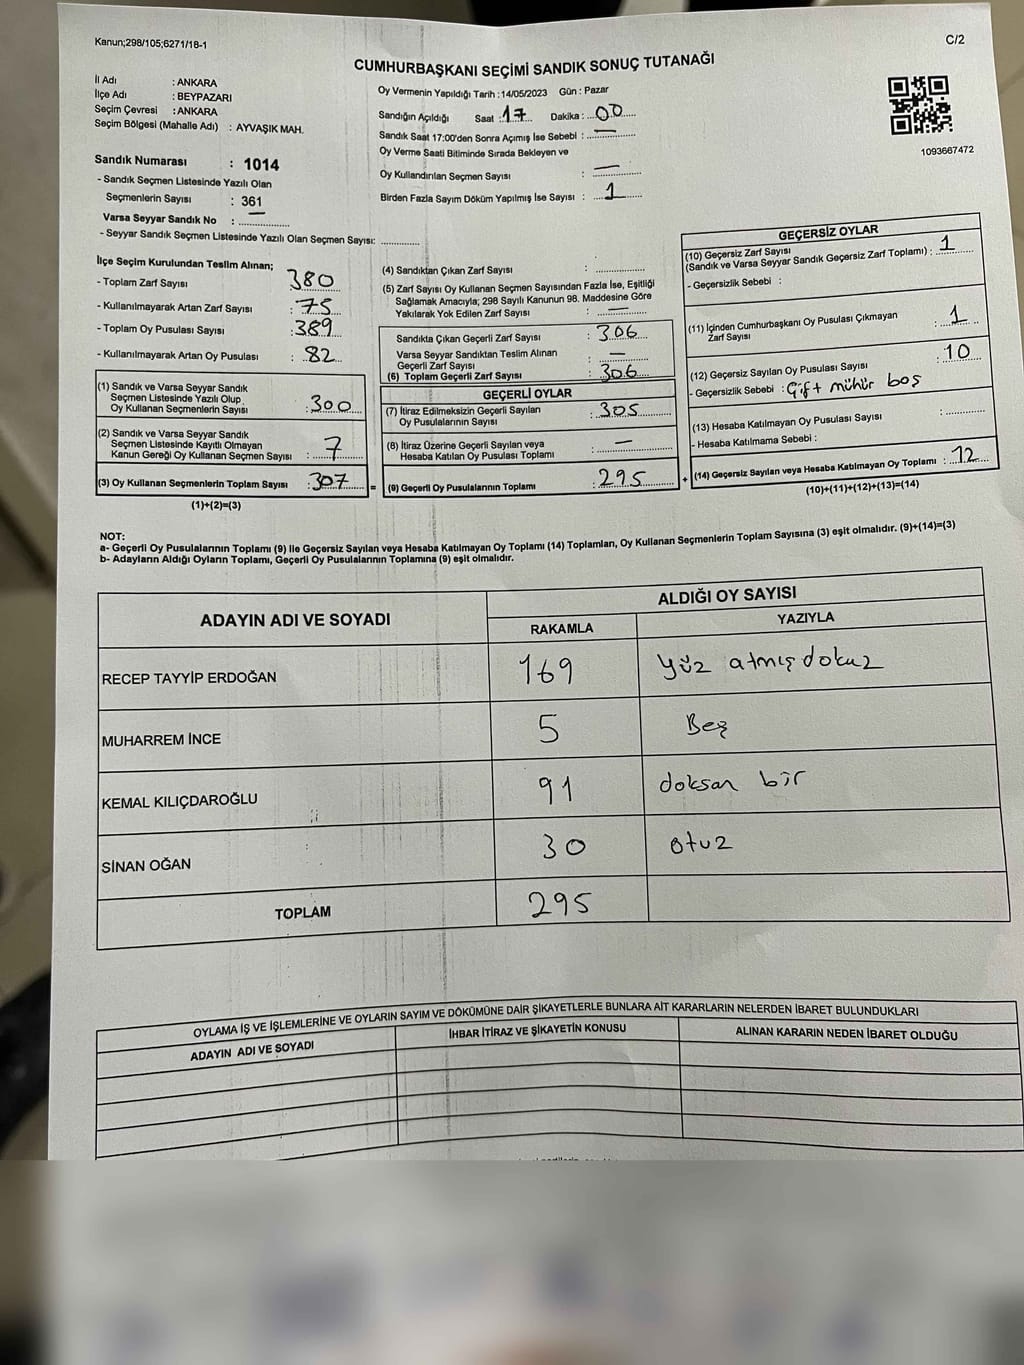 Kanun;298/105;6271/18-1
C/2
CUMHURBAŞKANI SEÇİMİ SANDIK SONUÇ TUTANAĞI
İl Adı : ANKARA
İlçe Adı : BEYPAZARI
Seçim Çevresi : ANKARA
Seçim Bölgesi (Mahalle Adı) : AYVAŞIK MAH.
Sandık Numarası : 1014
- Sandık Seçmen Listesinde Yazılı Olan
Seçmenlerin Sayısı : 361
Varsa Seyyar Sandık No : —
- Seyyar Sandık Seçmen Listesinde Yazılı Olan Seçmen Sayısı: ..............
Oy Vermenin Yapıldığı Tarih : 14/05/2023 Gün : Pazar
Sandığın Açıldığı Saat : 17 Dakika : 00
Sandık Saat 17:00'den Sonra Açımış İse Sebebi : —
Oy Verme Saati Bitiminde Sırada Bekleyen ve
Oy Kullandırılan Seçmen Sayısı : —
Birden Fazla Sayım Döküm Yapılmış İse Sayısı : 1
1093667472
İlçe Seçim Kurulundan Teslim Alınan;
- Toplam Zarf Sayısı : 380
- Kullanılmayarak Artan Zarf Sayısı : 75
- Toplam Oy Pusulası Sayısı : 389
- Kullanılmayarak Artan Oy Pusulası : 82
(1) Sandık ve Varsa Seyyar Sandık
Seçmen Listesinde Yazılı Olup
Oy Kullanan Seçmenlerin Sayısı : 300
(2) Sandık ve Varsa Seyyar Sandık
Seçmen Listesinde Kayıtlı Olmayan
Kanun Gereği Oy Kullanan Seçmen Sayısı : 7
(3) Oy Kullanan Seçmenlerin Toplam Sayısı : 307 =
(1)+(2)=(3)
(4) Sandıktan Çıkan Zarf Sayısı : ..............
(5) Zarf Sayısı Oy Kullanan Seçmen Sayısından Fazla İse, Eşitliği
Sağlamak Amacıyla; 298 Sayılı Kanunun 98. Maddesine Göre
Yakılarak Yok Edilen Zarf Sayısı : —
Sandıkta Çıkan Geçerli Zarf Sayısı : 306
Varsa Seyyar Sandıktan Teslim Alınan
Geçerli Zarf Sayısı : —
(6) Toplam Geçerli Zarf Sayısı : 306
GEÇERLİ OYLAR
(7) İtiraz Edilmeksizin Geçerli Sayılan
Oy Pusulalarının Sayısı : 305
(8) İtiraz Üzerine Geçerli Sayılan veya
Hesaba Katılan Oy Pusulası Toplamı : —
(9) Geçerli Oy Pusulalarının Toplamı : 295 +
GEÇERSİZ OYLAR
(10) Geçersiz Zarf Sayısı
(Sandık ve Varsa Seyyar Sandık Geçersiz Zarf Toplamı) : 1
- Geçersizlik Sebebi :
(11) İçinden Cumhurbaşkanı Oy Pusulası Çıkmayan
Zarf Sayısı : 1
(12) Geçersiz Sayılan Oy Pusulası Sayısı : 10
- Geçersizlik Sebebi : Çift mühür boş
(13) Hesaba Katılmayan Oy Pusulası Sayısı : ..............
- Hesaba Katılmama Sebebi :
(14) Geçersiz Sayılan veya Hesaba Katılmayan Oy Toplamı : 12
(10)+(11)+(12)+(13)=(14)
NOT:
a- Geçerli Oy Pusulalarının Toplamı (9) ile Geçersiz Sayılan veya Hesaba Katılmayan Oy Toplamı (14) Toplamları, Oy Kullanan Seçmenlerin Toplam Sayısına (3) eşit olmalıdır. (9)+(14)=(3)
b- Adayların Aldığı Oyların Toplamı, Geçerli Oy Pusulalarının Toplamına (9) eşit olmalıdır.
ADAYIN ADI VE SOYADI
ALDIĞI OY SAYISI
RAKAMLA YAZIYLA
RECEP TAYYİP ERDOĞAN 169 Yüz atmış dokuz
MUHARREM İNCE 5 Beş
KEMAL KILIÇDAROĞLU 91 doksan bir
SİNAN OĞAN 30 otuz
TOPLAM 295
OYLAMA İŞ VE İŞLEMLERİNE VE OYLARIN SAYIM VE DÖKÜMÜNE DAİR ŞİKAYETLERLE BUNLARA AİT KARARLARIN NELERDEN İBARET BULUNDUKLARI
ADAYIN ADI VE SOYADI İHBAR İTİRAZ VE ŞİKAYETİN KONUSU ALINAN KARARIN NEDEN İBARET OLDUĞU